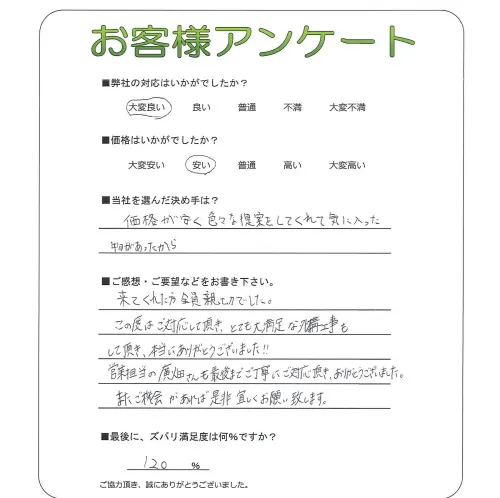 お客様アンケート
■弊社の対応はいかがでしたか？
大変良い 良い 普通 不満 大変不満
■価格はいかがでしたか？
大変安い 安い 普通 高い 大変高い
■当社を選んだ決め手は？
価格が安く色々な提案をしてくれて気に入った
物があったから
■ご感想・ご要望などをお書き下さい。
来てくれた方全員親切でした。
この度はご対応して頂き、とても大満足な工事も
して頂き、本当にありがとうございました!!
営業担当の廣畑さんも最後までご丁寧にご対応頂き、ありがとうございました。
またご機会があれば是非宜しくお願い致します。
■最後に、ズバリ満足度は何%ですか？
120 %
ご協力頂き、誠にありがとうございました。